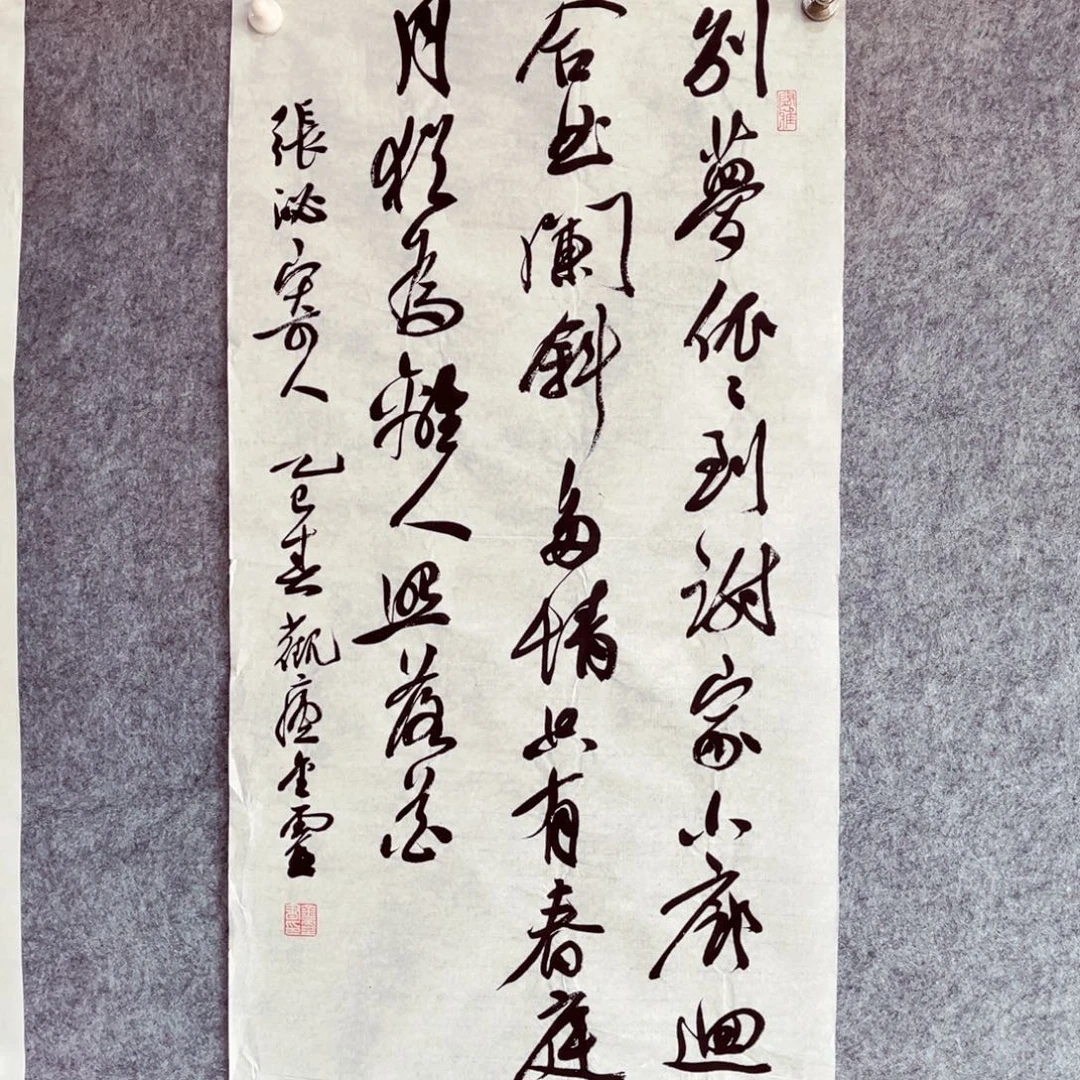 別夢依〻到謝家小廊迴
合曲闌斜多情只有春庭
月猶為離人照落花
張泌寄人 乙巳春 觀